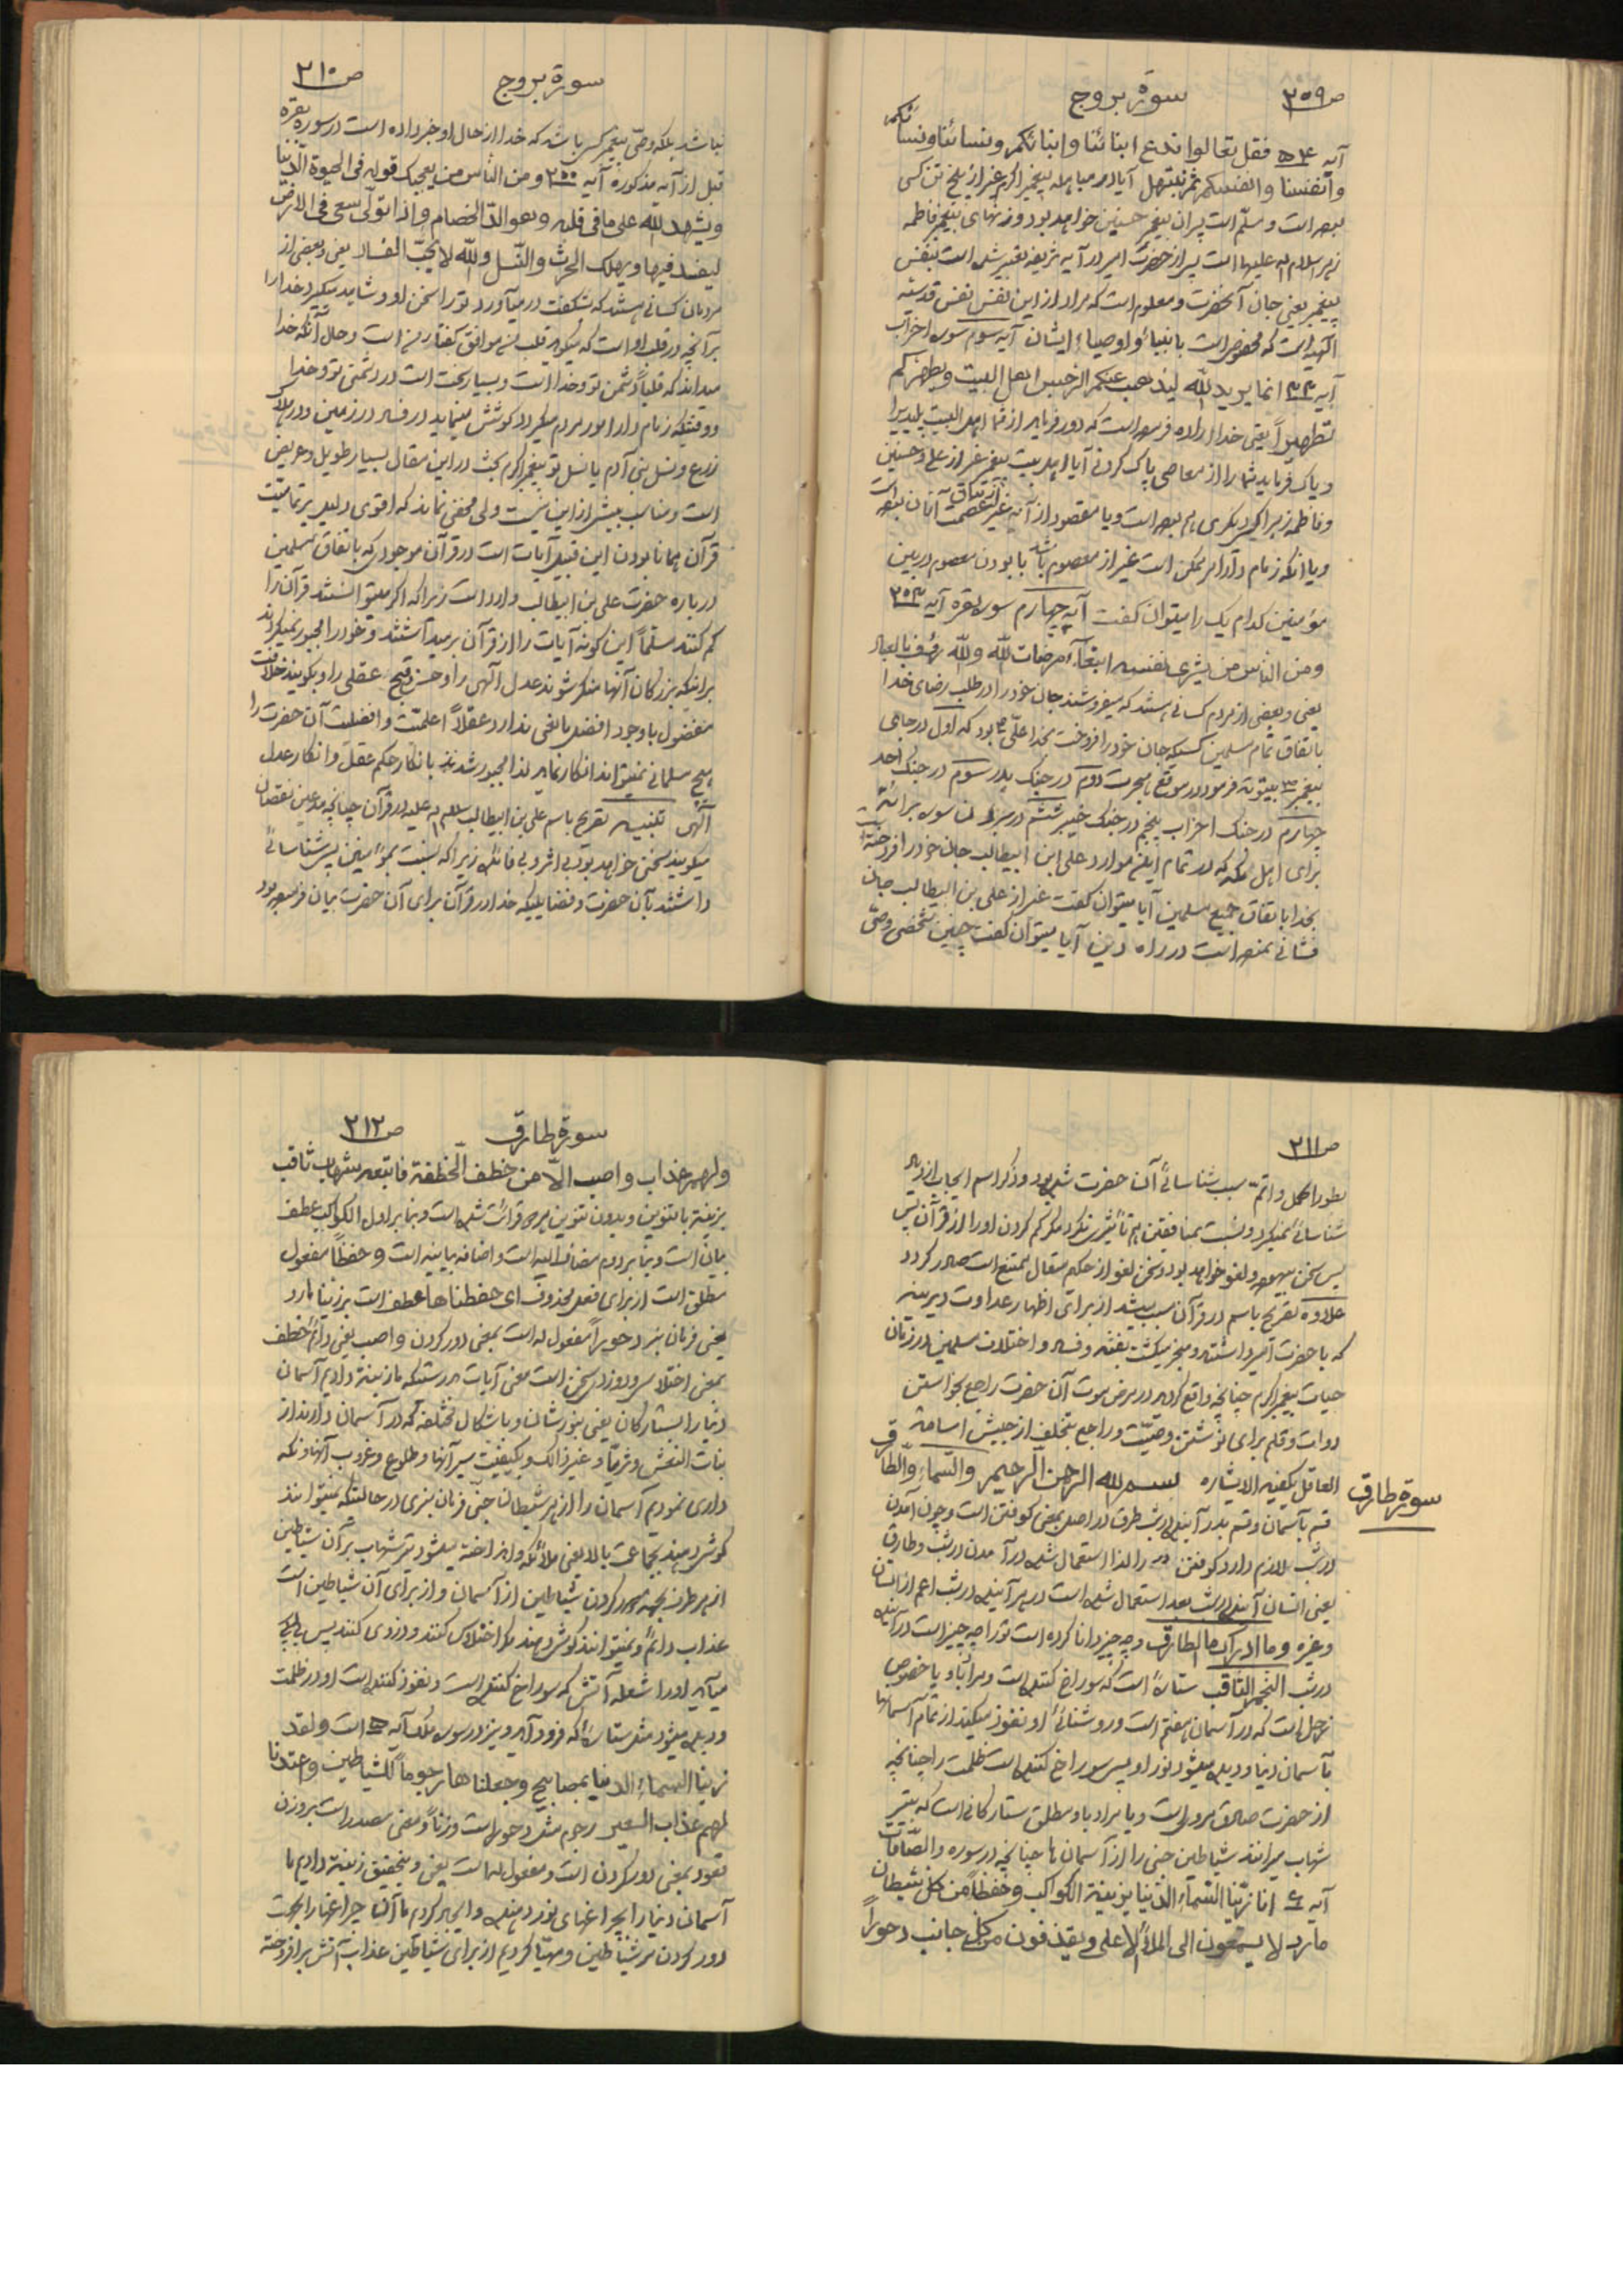 ص ۲۰۹ سورة بروج
آیه ۵۴ فقل تعالوا ندع ابنائنا وابنائکم ونسائنا ونسائکم
وانفسنا وانفسکم ثم نبتهل آیا در مباهله پیغمبر اکرم غیر از پنج تن کسی
بوده است ومسلّم است پسران پیغمبر حسنین خواهد بود وزنهای پیغمبر فاطمه
زهرا سلام الله علیها است پس از حضرت امیر در آیه شریفه تعبیر شده است بنفس
پیغمبر یعنی جان آنحضرت ومعلوم است که مراد از این نفس نفس قدسیّه
الهیّه است که مخصوص است بانبیاء واوصیاء ایشان آیه سوم سوره احزاب
آیه ۳۳ انما یرید الله لیذهب عنکم الرجس اهل البیت ویطهرکم
تطهیراً یعنی خدا اراده فرموده است که دور فرماید از شما اهل البیت پلیدی را
وپاک فرماید شما را از معاصی پاک کردنی آیا اهل بیت پیغمبر غیر از علی وحسنین
وفاطمه زهرا کس دیگری هم بوده است ویا مقصود از آیه غیر از عصمت آنان بوده است
ویا آنکه زمام دار امر ممکن است غیر از معصوم باشد با بودن معصوم در بین
مؤمنین کدام یک را میتوان گفت آیه چهارم سوره بقره آیه ۲۰۳
ومن الناس من یشری نفسه ابتغاء مرضات الله والله رؤف بالعباد
یعنی وبعضی از مردم کسانی هستند که میفروشند جان خود را در طلب رضای خدا
باتفاق تمام مسلمین کسیکه جان خود را فروخت بخدا علیّ بود که اول در جای
پیغمبر بیتوته فرمود در موقع هجرت دوم در جنگ بدر سوم در جنگ احد
چهارم در جنگ احزاب پنجم در جنگ خیبر ششم در بردن سوره برائة
برای اهل مکه که در تمام این موارد علی ابن ابیطالب جان خود را فروخته
بخدا باتفاق جمیع مسلمین آیا میتوان گفت غیر از علی بن ابیطالب جان
فشانی نموده است در راه دین آیا میتوان گفت چنین شخصی وصیّ
سورة بروج ص ۲۱۰
نباشد بلکه وصیّ پیغمبر کسی باشد که خدا از حال او خبر داده است در سوره بقره
قبل از آیه مذکوره آیه ۲۰۰ ومن الناس من یعجبک قوله فی الحیوة الدّنیا
ویشهد الله علی ما فی قلبه وهو الدّ الخصام واذا تولّی سعی فی الارض
لیفسد فیها ویهلک الحرث والنّسل والله لا یحبّ الفساد یعنی وبعضی از
مردمان کسانی هستند که بشگفت درمیآورد تو را سخن او وشاهد میگیرد خدا را
بر آنچه در قلب او است که میگوید قلب من موافق گفتار من است وحال آنکه خدا
میداند که قلباً دشمن تو وخدا است وبسیار سخت است در دشمنی تو وخدا
ووقتیکه زمام دار امور مردم میگردد کوشش مینماید در فساد در زمین ودر هلاک
زرع ونسل بنی آدم یا نسل تو پیغمبر اکرم بحث در این مقال بسیار طویل وعریض
است ومناسب بیش از این نیست ولی مخفی نماند که اقوی دلیل بر تمامیّت
قرآن همانا بودن این قبیل آیات است در قرآن موجود که باتفاق مسلمین
درباره حضرت علی بن ابیطالب وارد است زیرا که اگر میتوانستند قرآن را
کم کنند مسلّماً این گونه آیات را از قرآن برمیداشتند وخود را مجبور نمیکردند
برای اینکه بزرگان آنها منکر شوند عدل آلهی را وحسن وقبح عقلی را وبگویند خلافت
مفضول با وجود افضل مانعی ندارد عقلاً اعلمیّت وافضلیت آن حضرت را
هیچ مسلمانی نمیتواند انکار نماید لذا مجبور شدند بانکار حکم عقل وانکار عدل
آلهی تنبیه تصریح باسم علی بن ابیطالب سلام الله علیه در قرآن چنانچه مدعین نقصان
میگویند سخنی خواهد بود بی اثر وبی فائده زیرا که نسبت بمؤمنین پس شناسائی
داشتند بآن حضرت وفضایلیکه خدا در قرآن برای آن حضرت بیان فرموده بود
ص ۲۱۱
بطور اکمل واتمّ سبب شناسائی آن حضرت شده بود وذکر اسم ایجاب ازدیاد
شناسائی نمیکرد ونسبت بمنافقین هم تأثیری نمیکرد مگر کم کردن او را از قرآن پس
پس سخن بیهوده ولغو خواهد بود وسخن لغو از حکیم متعال ممتنع است صادر گردد
علاوه تصریح باسم در قرآن سبب میشد از برای اظهار عداوت دیرینه
که با حضرت امیر داشتند ومنجر میگشت بفتنه وفساد واختلاف مسلمین در زمان
حیات پیغمبر اکرم چنانچه واقع گردید در مرض موت آن حضرت راجع بخواستن
دوات وقلم برای نوشتن وصیّت وراجع بتخلف از جیش اسامة
العاقل یکفیه الاشاره بسم الله الرحمن الرحیم والسّماء والطارق
سورة طارق
قسم بآسمان وقسم بدر آینده در شب طرق در اصل بمعنی کوفتن است وچون آمدن
در شب لازم دارد کوفتن در را لذا استعمال شده در آمدن در شب وطارق
یعنی انسان آینده در شب بعد استعمال شده است در هر آینده در شب اعم از انسان
وغیره وما ادریک ما الطارق وچه چیز دانا کرده است تو را چه چیز است در آینده
در شب النجم الثاقب ستاره است که سوراخ کننده است ومراد یا خصوص
زحل است که در آسمان هفتم است وروشنائی او نفوذ میکند از تمام آسمانها
بآسمان دنیا ودیده میشود نور او پس سوراخ کننده است ظلمت را چنانچه
از حضرت صادق مروی است ویا مراد باو مطلق ستارگانی است که بتیر
شهاب میرانند شیاطین جنی را از آسمان ها چنانچه در سوره والصّافّات
آیه ۶ انا زیّنّا السّماء الدّنیا بزینة الکواکب وحفظاً من کلّ شیطان
مارد لا یسمعون الی الملأ الاعلی ویقذفون من کل جانب دحوراً
سورة طارق ص ۲۱۲
ولهم عذاب واصب الّا من خطف الخطفة فاتبعه شهاب ثاقب
بزینة با تنوین وبدون تنوین هر دو قرائت شده است وبنا بر اول الکواکب عطف
بیان است وبنا بر دوم مضاف الیه است واضافه بیانیه است وحفظاً مفعول
مطلق است از برای فعل محذوف ای حفظناها عطف است بر زیّنّا مارد
یعنی فرمان نبر دحوراً مفعول له است بمعنی دور کردن واصب یعنی دائم خطف
بمعنی اختلاس ودزدی سخن است معنی آیات بدرستیکه ما زینة دادیم آسمان
دنیا را بستارگان یعنی بنورشان وباشکال مختلفه که در آسمان دارند از
بنات النعش وثریّا وغیر ذالک وبکیفیت سیر آنها وطلوع وغروب آنها ونگه
داری نمودیم آسمان را از هر شیطان جنّی فرمان نبری در حالتیکه نمیتوانند
گوش دهند بجماعت بالا یعنی ملائکه وانداخته میشود تیر شهاب بر آن شیاطین
از هر طرف بجهة دور کردن شیاطین از آسمان واز برای آن شیاطین است
عذاب دائم ونمیتوانند گوش دهند مگر اختلاس کنند ودزدی کنند پس
میآید او را شعله آتش که سوراخ کننده است ونفوذ کننده است او در ظلمت
ودیده میشود مثل ستاره که فرود آید ونیز در سوره ملک آیه ۵ است ولقد
زینّا السماء الدنیا بمصابیح وجعلناها رجوماً للشیاطین واعتدنا
لهم عذاب السعیر رجوم مثل دحور است وزناً ومعنی مصدر است بر وزن
قعود بمعنی دور کردن است ومفعول له است یعنی وبتحقیق زینة دادیم ما
آسمان دنیا را بچراغهای نور دهنده وایجاد کردیم ما آن چراغها را بجهت
دور کردن مر شیاطین ومهیّا کردیم از برای شیاطین عذاب آتش برافروخته